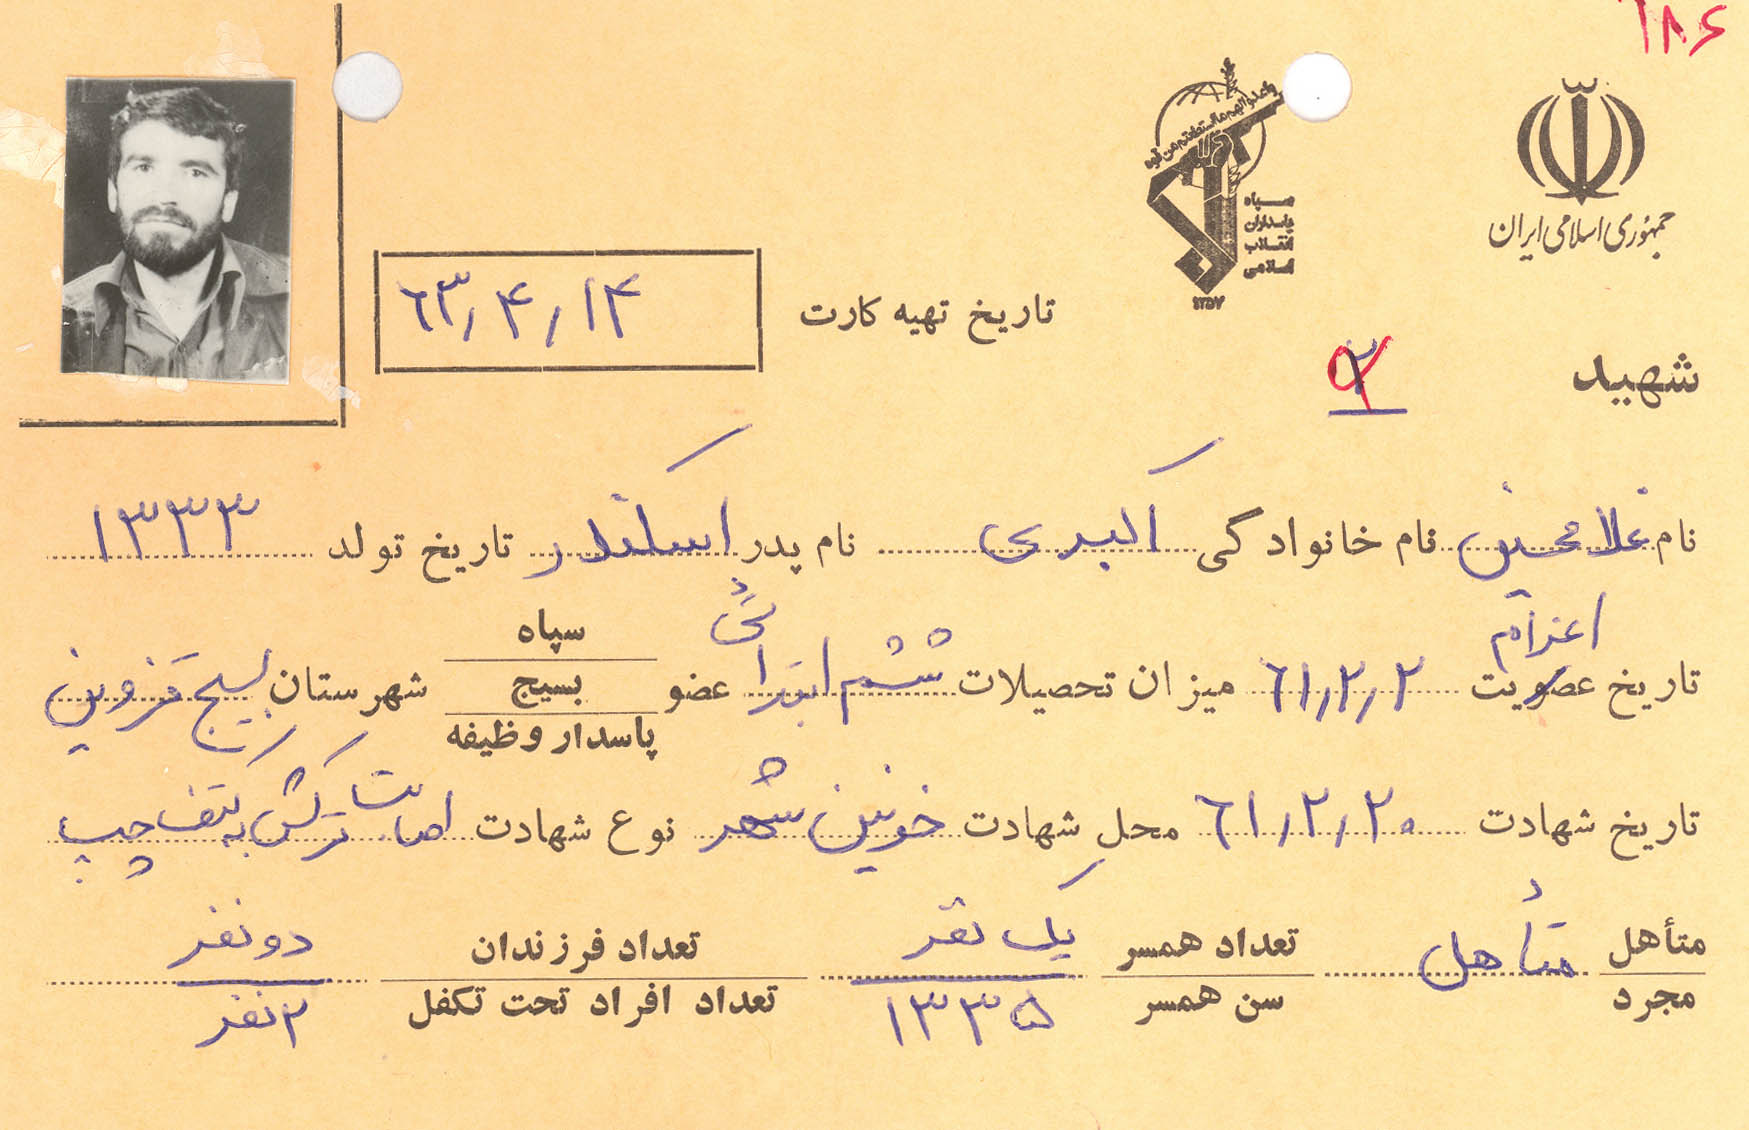 ۶۸۶
جمهوری اسلامی ایران
واعدوا لهم ما استطعتم من قوه
سپاه
پاسداران
انقلاب
اسلامی
۱۳۵۷
تاریخ تهیه کارت ۶۳/۴/۱۴
شهید ۲
نام غلامحسین نام خانوادگی اکبری نام پدر اسکندر تاریخ تولد ۱۳۳۳
اعزام
تاریخ عضویت ۶۱/۲/۲ میزان تحصیلات ششم ابتدائی عضو سپاه بسیج پاسدار وظیفه شهرستان بسیج قزوین
تاریخ شهادت ۶۱/۲/۲۰ محل شهادت خونین شهر نوع شهادت اصابت ترکش به کتف چپ
متأهل مجرد متأهل تعداد همسر یک نفر تعداد فرزندان دو نفر
سن همسر ۱۳۳۵ تعداد افراد تحت تکفل ۳ نفر